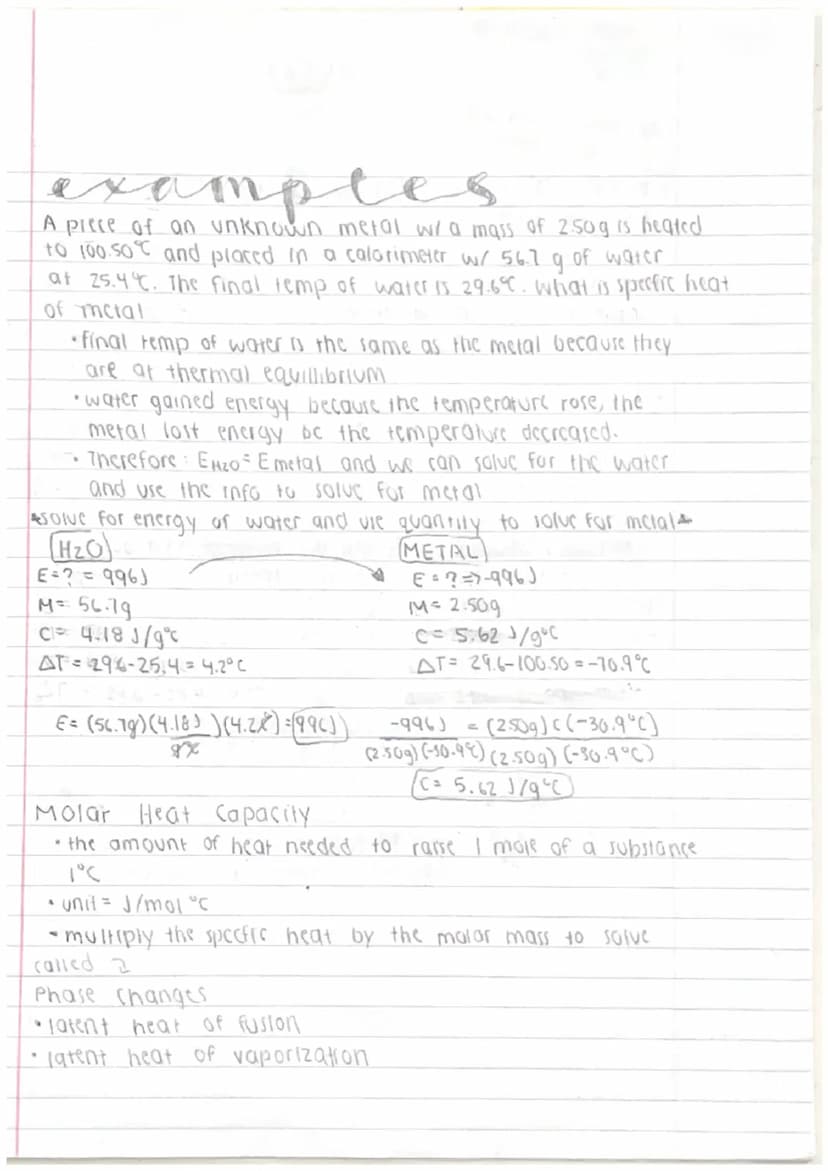 examples
A piece of an unknown metal w/ a mass of 2.50g is heated
to 100.50°C and placed in a calorimeter w/ 56.7 g of water
at 25.4°C. The final temp of water is 29.6°C. What is specific heat
of metal
• final temp of water is the same as the metal because they
are at thermal equillibrium
• water gained energy because the temperature rose, the
metal lost energy bc the temperature decreased.
• Therefore: EH2O = Emetal and we can solve for the water
and use the info to solve for metal
*solve for energy of water and use quantity to solve for metal*
H2O METAL
E=? = 996J E=? => -996J
M= 56.7g M= 2.50g
C= 4.18 J/g°C C= 5.62 J/g°C
ΔT = 29.6-25.4 = 4.2°C ΔT= 29.6-100.50 = -70.9°C
E= (56.7g)(4.18J)(4.2°C) = 996J -996J = (2.50g) C (-30.9°C)
g°C (2.50g)(-30.9°C) (2.50g) (-30.9°C)
C= 5.62 J/g°C
Molar Heat Capacity
• the amount of heat needed to raise 1 mole of a substance
1°C
• unit = J/mol °C
- multiply the specific heat by the molar mass to solve
called 2
Phase Changes
• latent heat of fusion
• latent heat of vaporization